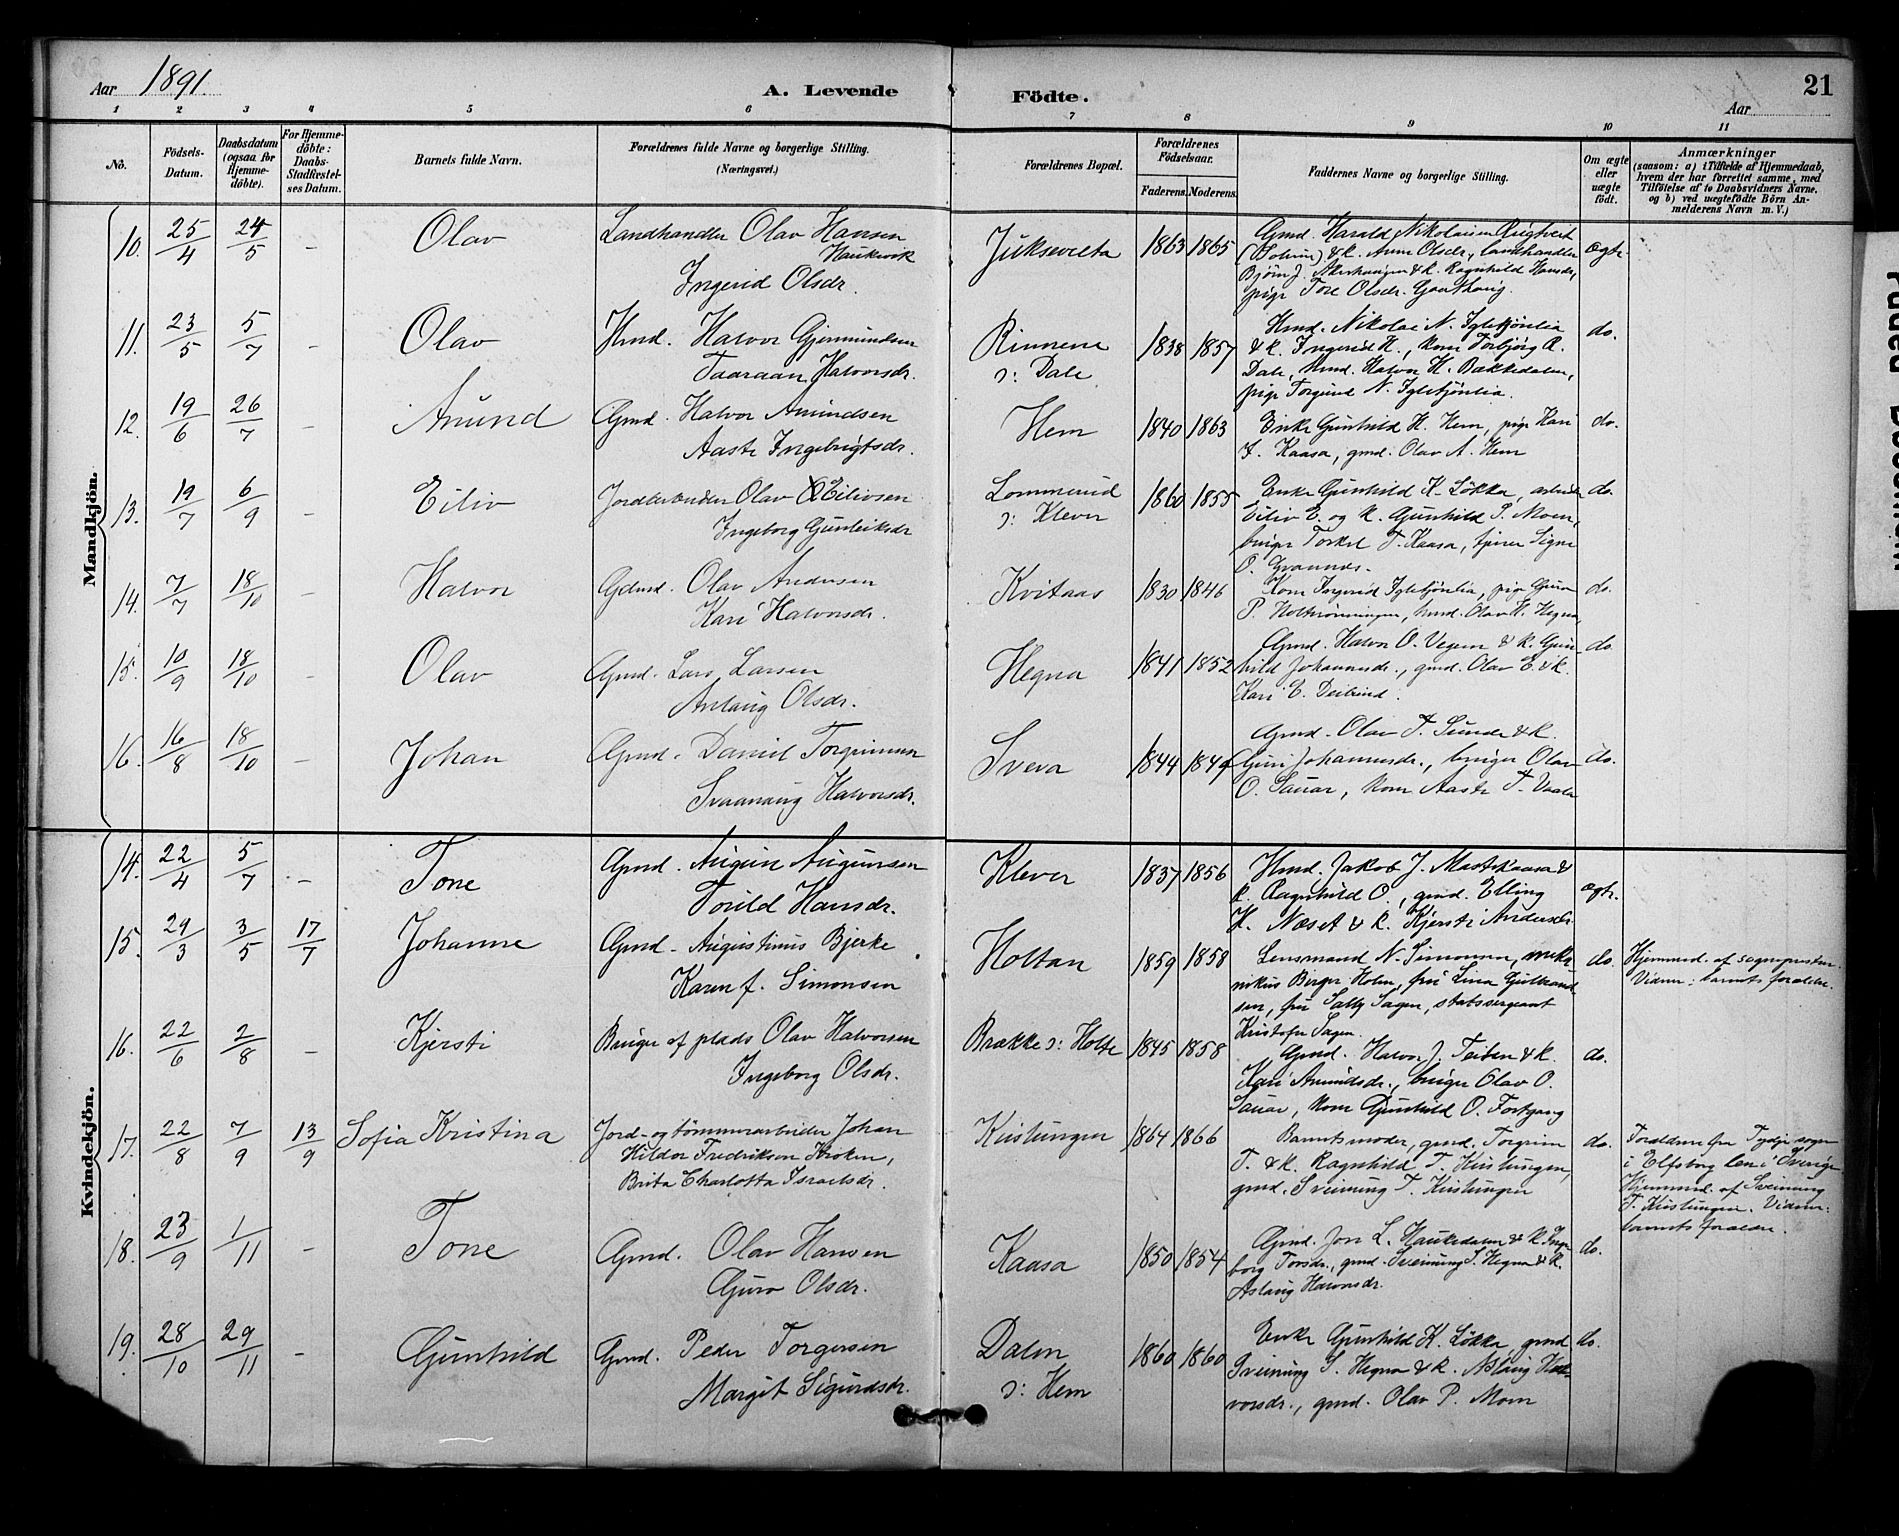 Aar 1891. A. Levende Födte. Aar 21
1 2 3 4 5 6 7 8 9 10 11
No.
Födsels-Datum.
Daabsdatum (ogsaa for Hjemme-döbte).
For Hjemme-döbte: Daabs-Stadfæstel-ses Datum.
Barnets fulde Navn.
Forældrenes fulde Navne og borgerlige Stilling.
(Næringsvei.)
Forældrenes Bopæl.
Forældrenes Födselsaar.
Faderens. Moderens.
Faddernes Navne og borgerlige Stilling.
Om ægte eller uægte födt.
Anmærkninger
(saasom: a) i Tilfælde af Hjemmedaab, hvem der har forrettet samme, med Tilföielse af to Daabsvidners Navne, og b) ved uægtefödte Börn Anmelderens Navn m. V.)
Mandkjön.
10. 25/4 24/5 - Olav Landhandler Olav Hansen Haukvik
Ingerid Olsdr. Juksevelta 1863 1865
Gmd. Harald Nikolaisen Rugtvert
k. Anne Olsdr., landhandler
Bjørn J. Akerhaugen & k. Ragnhild Hansdr,
pige Tone Olsdr. ægte
11. 23/5 5/7 - Olav Hmd. Halvor Gjermundsen
Taaraan Halvorsdr. Rinnene
ɔ: Dale 1838 1857
Hmd. Nikolai N. Igletjønlia
& k. Ingerid H., kone Torbjørg R.
Dale, hmd. Halvor H. Bakkedalen,
pige Torgund N. Igletjønlia. do.
12. 19/6 26/7 - Amund Gmd. Halvor Amundsen
Aaste Ingebrigtsdr. Hem 1840 1863
Enke Gunhild H. Hem, pige Kari
T. Kaasa, gmd. Olav A. Hem do.
13. 19/7 6/9 Eiliv Jordarbeider Olav Eilivsen
Ingeborg Gunleiksdr Lommerud
ɔ: Klever 1860 1855
Enke Gunhild K. Løkka, arbeid.
Eiliv E. og k. Gunhild S. Moen,
bruger Torkel T. Kaasa, tjener Signe
O. Grannes. do.
14. 7/7 18/10 - Halvor Gdmd. Olav Andersen
Kari Halvorsdr. Kvitaas 1830 1846
Kone Ingerid Igletjønlia, pige Guro
P. Holterønningen, hmd. Olav H. Hegna, do.
15. 10/9 18/10 - Olav Gmd. Lars Larsen
Anlaug Olsdr. Hegna 1841 1852
Gmd. Halvor O. Vegem & k. Gun-
hild Johannesdr., gmd. Olav E. & k.
Kari E. Deilrind. do.
16. 16/8 18/10 - Johan Gmd. Daniel Torgrimsen
Svaanaug Halvorsdr. Sveva 1844 1849
Gmd. Olav T. Sunde & k.
Guri Johannesdr., bruger Olav
O. Sauar, kone Aaste T. Vaala do.
Kvindekjön.
14. 22/4 5/7 - Tone Gmd. Augun Augunsen
Torild Hansdr. Klever 1837 1856
Hmd. Jakob J. Mastekaasa &
k. Ragnhild O., gmd. Elling
H. Næset & k. Kjersti Andersdr. ægte.
15. 29/3 3/5 17/7 Johanne Gmd. Augustinus Bjerke
Karen f. Simonsen Holtan 1859 1858
Lensmand N. Simonsen, meka-
nikus Birger Holm, fru Lina Gulbrand-
sen, fru Sally Sagen, stabssergeant
Kristofer Sagen. do. Hjemmed. af sognepresten.
Vidner: barnets forældre.
16. 22/6 2/8 - Kjersti Bruger af plads Olav Halvorsen
Ingeborg Olsdr. Brække ɔ: Holte 1845 1858
Gmd. Halvor J. Teiben & k.
Kari Amundsdr., bruger Olav O.
Sauar, kone Gunhild O. Fortgang do.
17. 22/8 7/9 13/9 Sofia Kristina Jord- og tømmerarbeider Johan
Hildor Fredriksen Kroken,
Brita Charlotta Israelsdr. Kustungen 1864 1866
Barnets moder, gmd. Torgrim
T. & k. Ragnhild T. Kustungen,
gmd. Sveinung T. Kustungen do. Forældrene fra Tydje sogn
i Elfsborg len i Sverige
Hjemmed. af Sveinung
T. Kustungen. Vidner:
barnets forældre.
18. 23/9 1/11 - Tone Gmd. Olav Hansen
Guro Olsdr. Kaasa 1850 1854
Gmd. Jon L. Haukedalen & k. Inge-
borg Torsdr., gmd. Sveinung S. Hegna & k.
Aslaug Halvorsdr. do.
19. 28/10 29/11 - Gunhild Gmd. Peder Torgersen
Margit Sigurdsdr. Dalen
ɔ: Hem 1860 1860
Enke Gunhild K. Løkka, gmd
Sveinung S. Hegna & k. Aslaug Hal-
vorsdr., gmd. Olav P. Moen do.